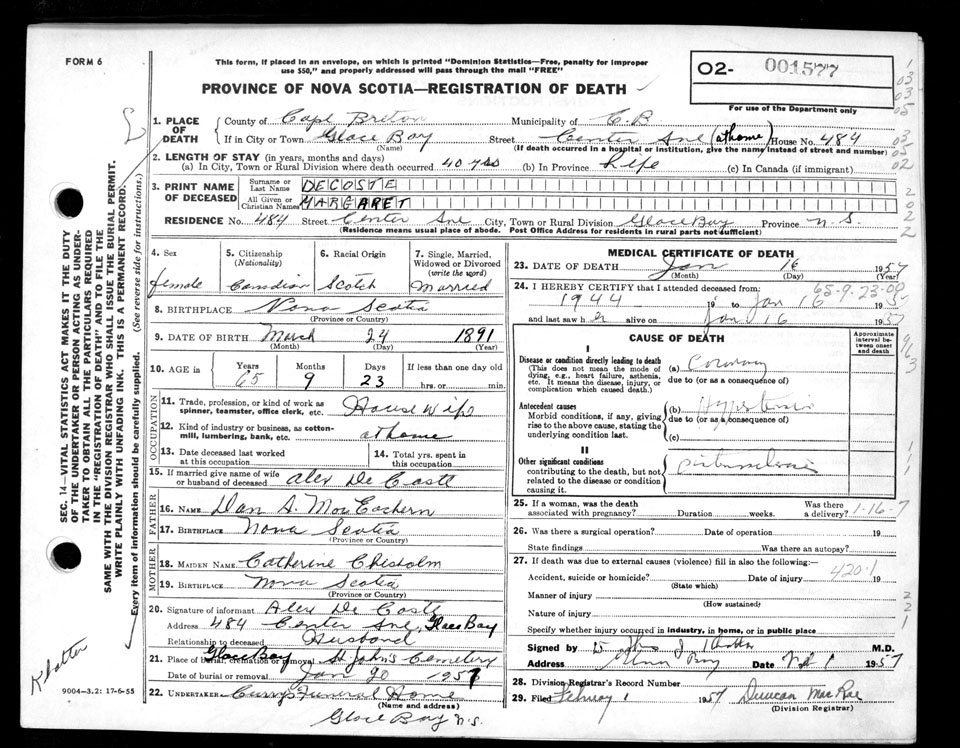 FORM 6
This form, if placed in an envelope, on which is printed "Dominion Statistics—Free, penalty for improper
use $50," and properly addressed will pass through the mail "FREE"
O2- 001577
PROVINCE OF NOVA SCOTIA—REGISTRATION OF DEATH
For use of the Department only
1. PLACE OF DEATH
County of Cape Breton Municipality of C.B
If in City or Town Glace Bay Street Center Ave (at home) House No. 484
(Name) (If death occurred in a hospital or institution, give the name instead of street and number)
2. LENGTH OF STAY (in years, months and days)
(a) In City, Town or Rural Division where death occurred 40 yrs (b) In Province Life (c) In Canada (if immigrant)
3. PRINT NAME OF DECEASED
Surname or Last Name DECOSTE
All Given or Christian Names MARGARET
RESIDENCE No. 484 Street Center Ave City, Town or Rural Division Glace Bay Province N.S.
(Residence means usual place of abode. Post Office Address for residents in rural parts not sufficient)
4. Sex
female
5. Citizenship
(Nationality)
Canadian
6. Racial Origin
Scotch
7. Single, Married,
Widowed or Divorced
(write the word)
Married
8. BIRTHPLACE Nova Scotia
(Province or Country)
9. DATE OF BIRTH March 24 1891
(Month) (Day) (Year)
10. AGE in Years Months Days If less than one day old
65 9 23 hrs. or min.
OCCUPATION
11. Trade, profession, or kind of work as
spinner, teamster, office clerk, etc. House Wife
12. Kind of industry or business, as cotton-
mill, lumbering, bank, etc. at home
13. Date deceased last worked
at this occupation
14. Total yrs. spent in
this occupation
15. If married give name of wife
or husband of deceased Alex De Coste
FATHER
16. NAME Dan A. MacEachern
17. BIRTHPLACE Nova Scotia
(Province or Country)
MOTHER
18. MAIDEN NAME Catherine Chisholm
19. BIRTHPLACE Nova Scotia
(Province or Country)
20. Signature of informant Alex De Coste
Address 484 Center Ave, Glace Bay
Relationship to deceased Husband
21. Place of burial, cremation or removal Glace Bay St John's Cemetery
Date of burial or removal Jan 20 1957
22. UNDERTAKER Curry's Funeral Home
(Name and address)
Glace Bay N.S.
MEDICAL CERTIFICATE OF DEATH
23. DATE OF DEATH Jan 16 1957
(Month) (Day) (Year)
24. I HEREBY CERTIFY that I attended deceased from:
65-9-23-00
1944 to Jan 16 1957
and last saw her alive on Jan 16 1957
CAUSE OF DEATH
Approximate
interval be-
tween onset
and death
I
Disease or condition directly leading to death
(This does not mean the mode of
dying, e.g., heart failure, asthenia,
etc. It means the disease, injury, or
complication which caused death.)
(a) Coronary
due to (or as a consequence of)
Antecedent causes
Morbid conditions, if any, giving
rise to the above cause, stating the
underlying condition last.
(b) Hypertension
due to (or as a consequence of)
(c)
II
Other significant conditions
contributing to the death, but not
related to the disease or condition
causing it.
25. If a woman, was the death
associated with pregnancy? Duration weeks. Was there
a delivery?
1-16-7
26. Was there a surgical operation? Date of operation 19
State findings Was there an autopsy?
27. If death was due to external causes (violence) fill in also the following:
Accident, suicide or homicide? Date of injury 19
(State which)
420.1
Manner of injury
(How sustained)
Nature of injury
Specify whether injury occurred in industry, in home, or in public place
Signed by M.D.
Address Date 1957
28. Division Registrar's Record Number
29. Filed February 1 1957 Duncan MacRae
(Division Registrar)
SEC. 14—VITAL STATISTICS ACT MAKES IT THE DUTY
OF THE UNDERTAKER OR PERSON ACTING AS UNDER-
TAKER TO OBTAIN ALL THE PARTICULARS REQUIRED
IN THE "REGISTRATION OF DEATH" AND TO FILE THE
SAME WITH THE DIVISION REGISTRAR WHO SHALL ISSUE THE BURIAL PERMIT.
WRITE PLAINLY WITH UNFADING INK. THIS IS A PERMANENT RECORD.
Every item of information should be carefully supplied. (See reverse side for instructions.)
9004—3.2: 17-6-55